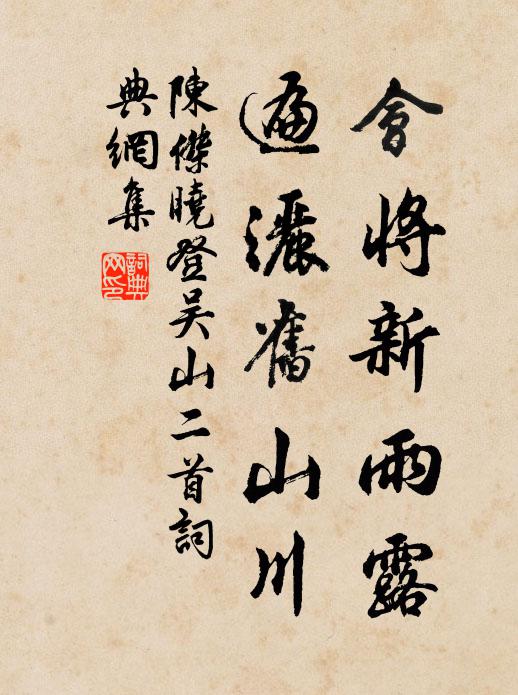 會將新雨露
遍灑舊山川
陳傑曉登吴山二首詞
典網集
詞典
网印